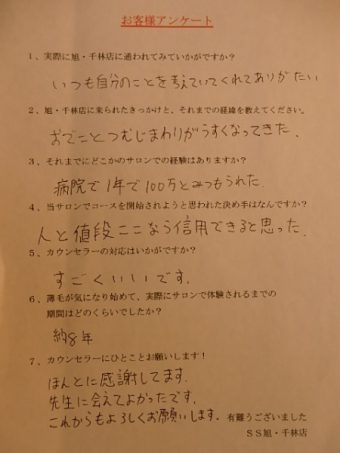 お客様アンケート
1、実際に旭・千林店に通われてみていかがですか？
いつも自分のことを考えていてくれてありがたい
2、旭・千林店に来られたきっかけと、それまでの経緯を教えてください。
おでことつむじまわりがうすくなってきた.
3、それまでにどこかのサロンでの経験はありますか？
病院で1年で100万とみつもられた.
4、当サロンでコースを開始されようと思われた決め手はなんですか？
人と値段ここなら信用できると思った.
5、カウンセラーの対応はいかがですか？
すごくいいです.
6、薄毛が気になり始めて、実際にサロンで体験されるまでの
期間はどのくらいでしたか？
約8年
7、カウンセラーにひとことお願いします！
ほんとに感謝してます.
先生に会えてよかったです.
これからもよろしくお願いします. 有難うございました
ＳＳ旭・千林店